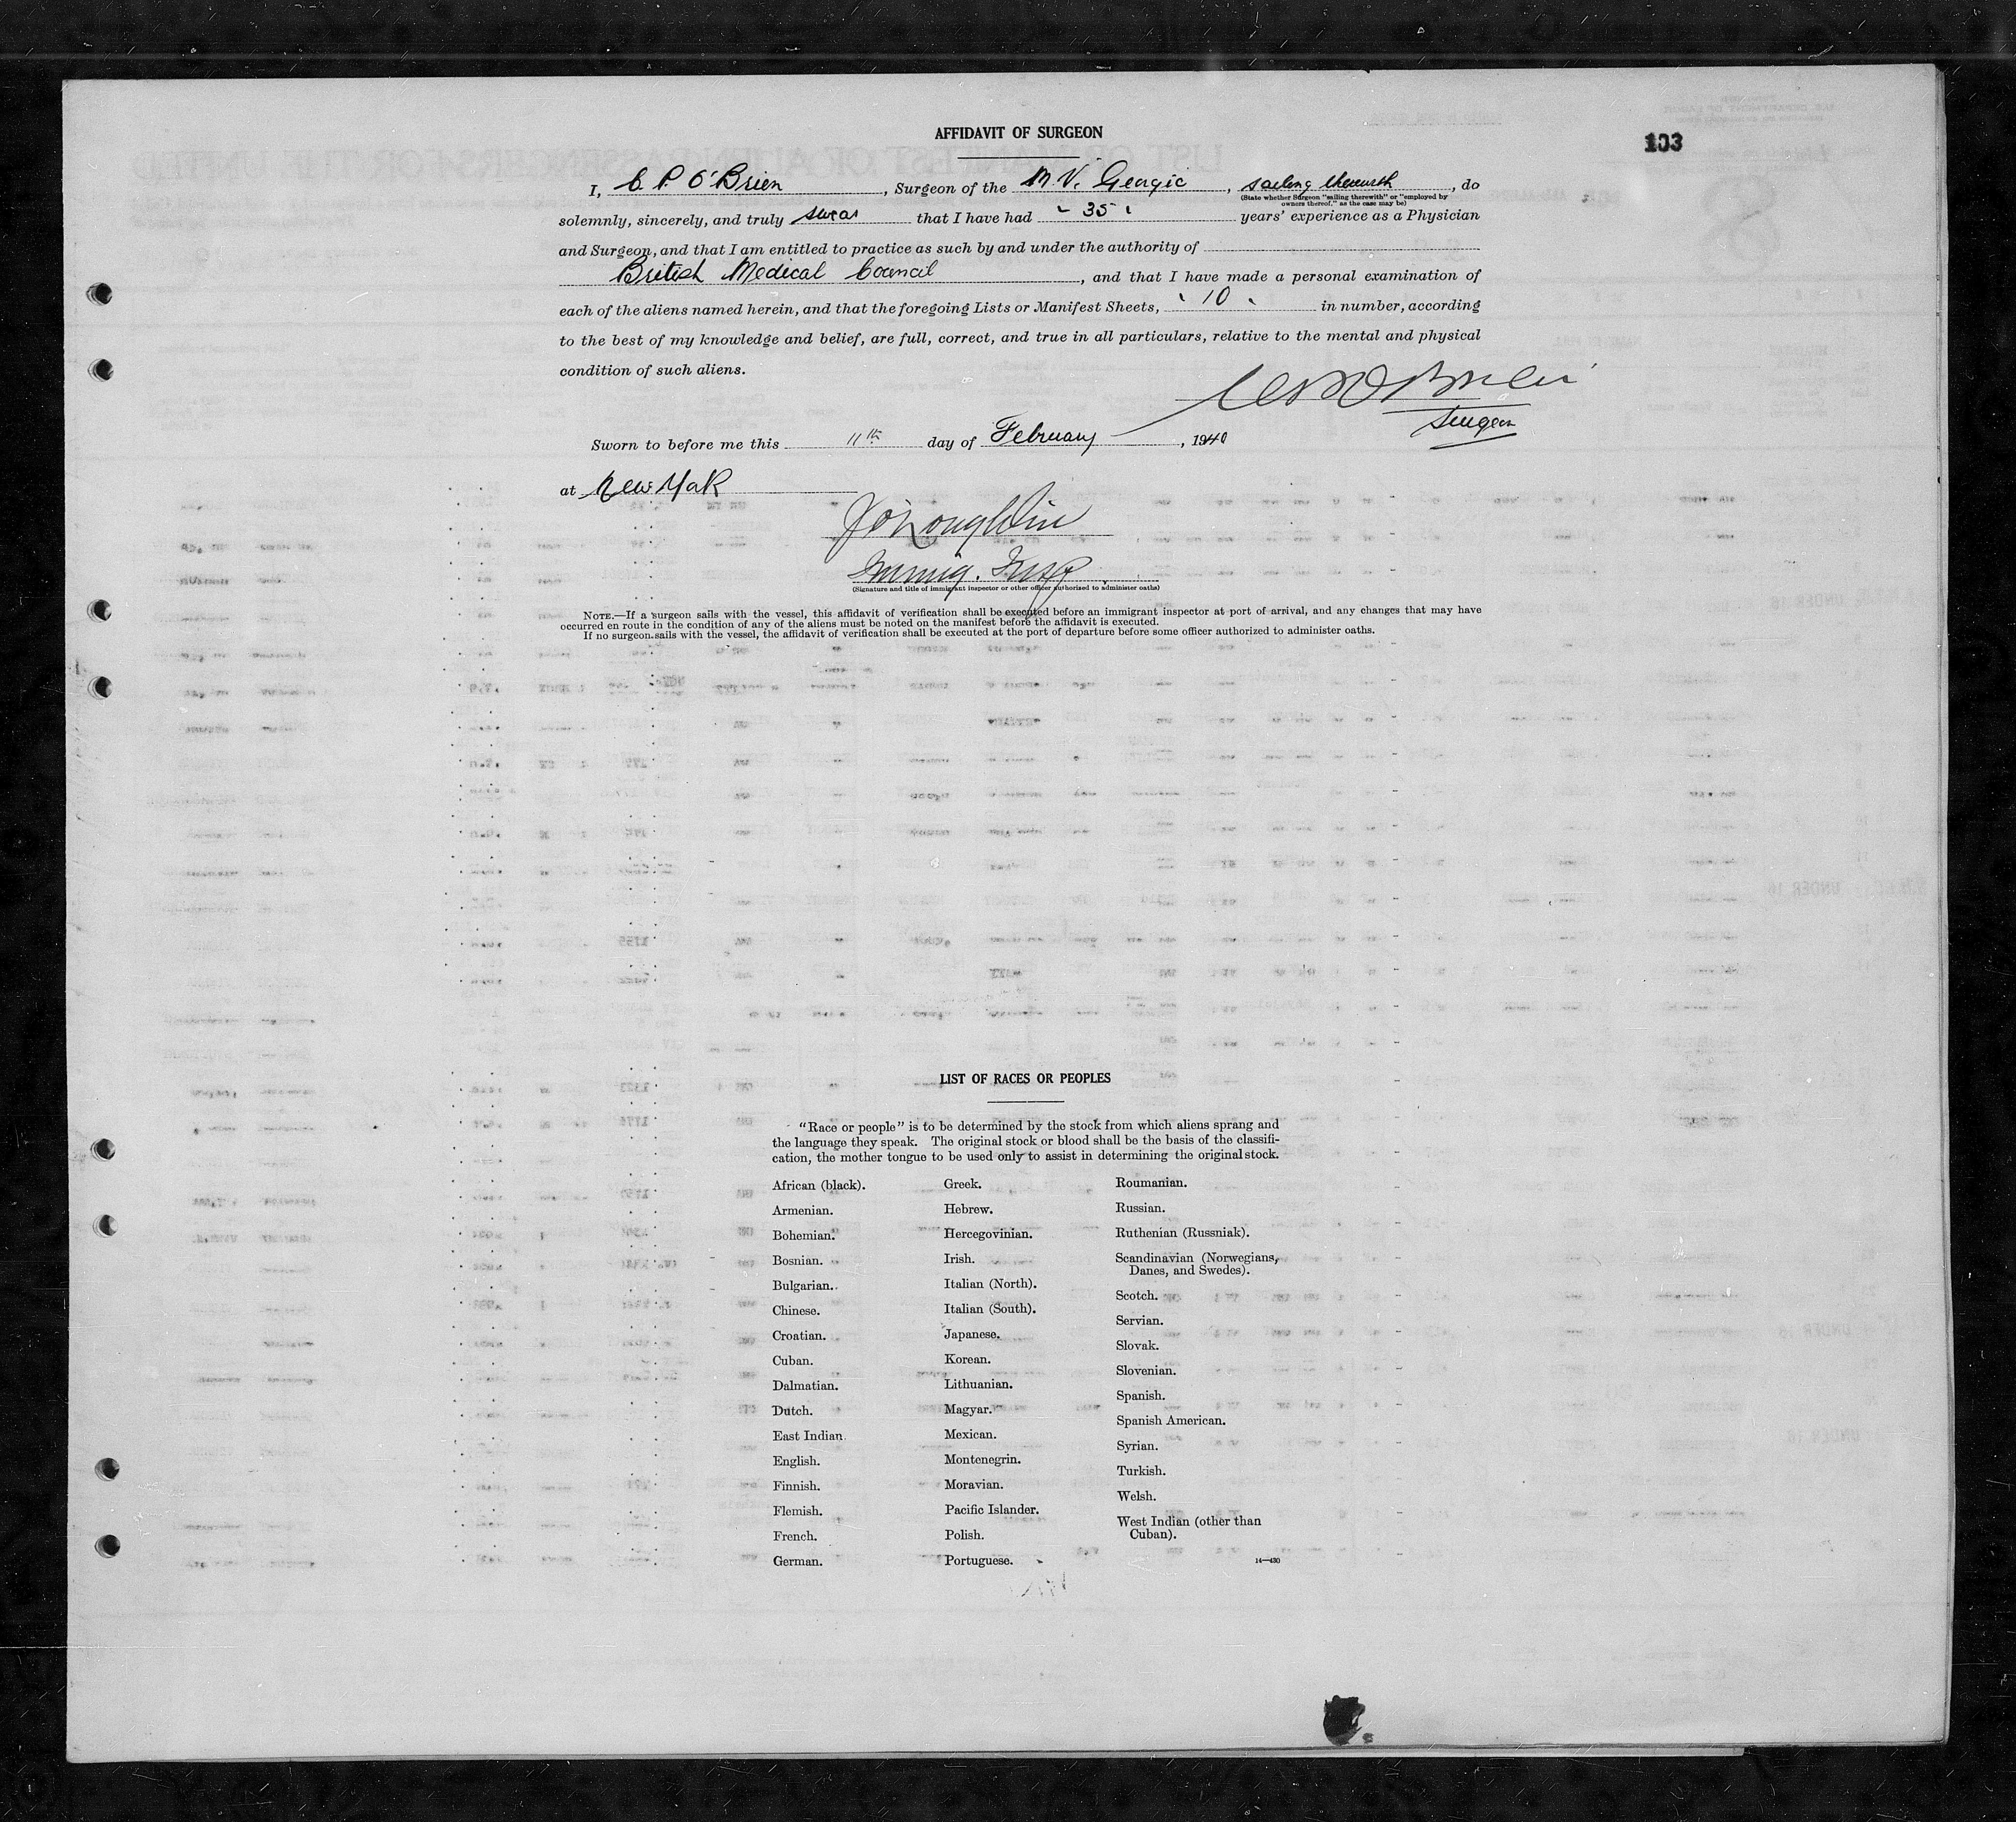 AFFIDAVIT OF SURGEON
103
I, C. P. O'Brien, Surgeon of the M. V. Georgic, sailing therewith, do
(State whether Surgeon "sailing therewith" or "employed by
owners thereof," as the case may be)
solemnly, sincerely, and truly swear that I have had - 35 - years' experience as a Physician
and Surgeon, and that I am entitled to practice as such by and under the authority of
British Medical Council, and that I have made a personal examination of
each of the aliens named herein, and that the foregoing Lists or Manifest Sheets, - 10 - in number, according
to the best of my knowledge and belief, are full, correct, and true in all particulars, relative to the mental and physical
condition of such aliens.
O'Brien
Surgeon
Sworn to before me this 11th day of February, 1940
at New York
J O'Loughlin
Immig. Insp.
(Signature and title of immigrant inspector or other officer authorized to administer oaths)
NOTE.—If a surgeon sails with the vessel, this affidavit of verification shall be executed before an immigrant inspector at port of arrival, and any changes that may have
occurred en route in the condition of any of the aliens must be noted on the manifest before the affidavit is executed.
If no surgeon sails with the vessel, the affidavit of verification shall be executed at the port of departure before some officer authorized to administer oaths.
UNDER 16
UNDER 16
UNDER 16
UNDER 16
LIST OF RACES OR PEOPLES
"Race or people" is to be determined by the stock from which aliens sprang and
the language they speak. The original stock or blood shall be the basis of the classifi-
cation, the mother tongue to be used only to assist in determining the original stock.
African (black).
Armenian.
Bohemian.
Bosnian.
Bulgarian.
Chinese.
Croatian.
Cuban.
Dalmatian.
Dutch.
East Indian.
English.
Finnish.
Flemish.
French.
German.
Greek.
Hebrew.
Hercegovinian.
Irish.
Italian (North).
Italian (South).
Japanese.
Korean.
Lithuanian.
Magyar.
Mexican.
Montenegrin.
Moravian.
Pacific Islander.
Polish.
Portuguese.
Roumanian.
Russian.
Ruthenian (Russniak).
Scandinavian (Norwegians,
Danes, and Swedes).
Scotch.
Servian.
Slovak.
Slovenian.
Spanish.
Spanish American.
Syrian.
Turkish.
Welsh.
West Indian (other than
Cuban).
14—430